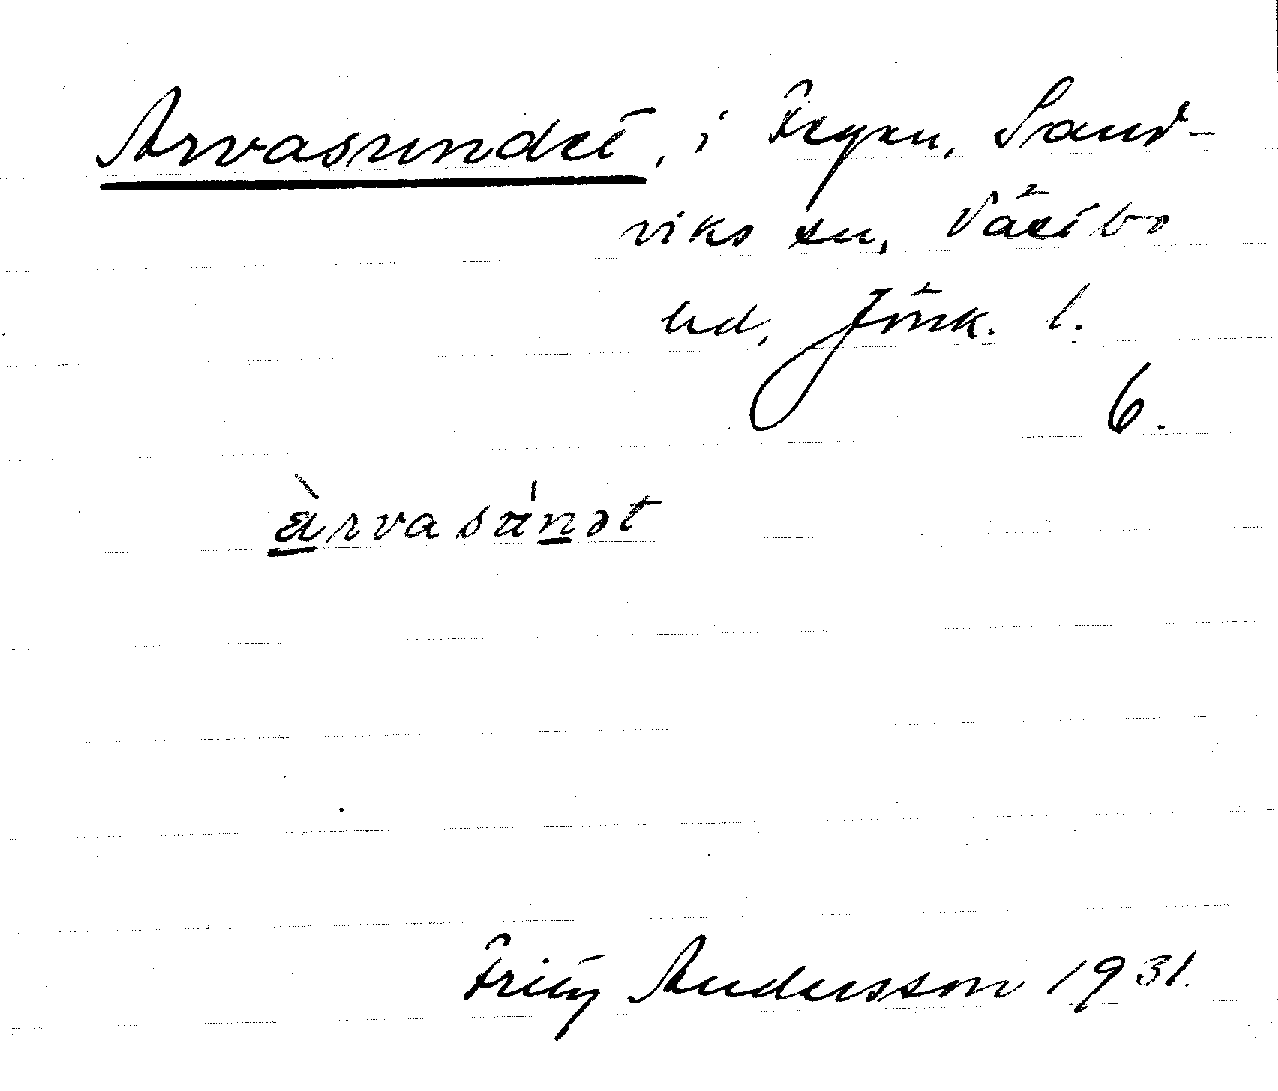 Arvasundet, i Fegen, Sand-
viks sn, Västbo
hd, Jönk. l.
6.
àrvasún̲ət
Fritz Andersson 1931.